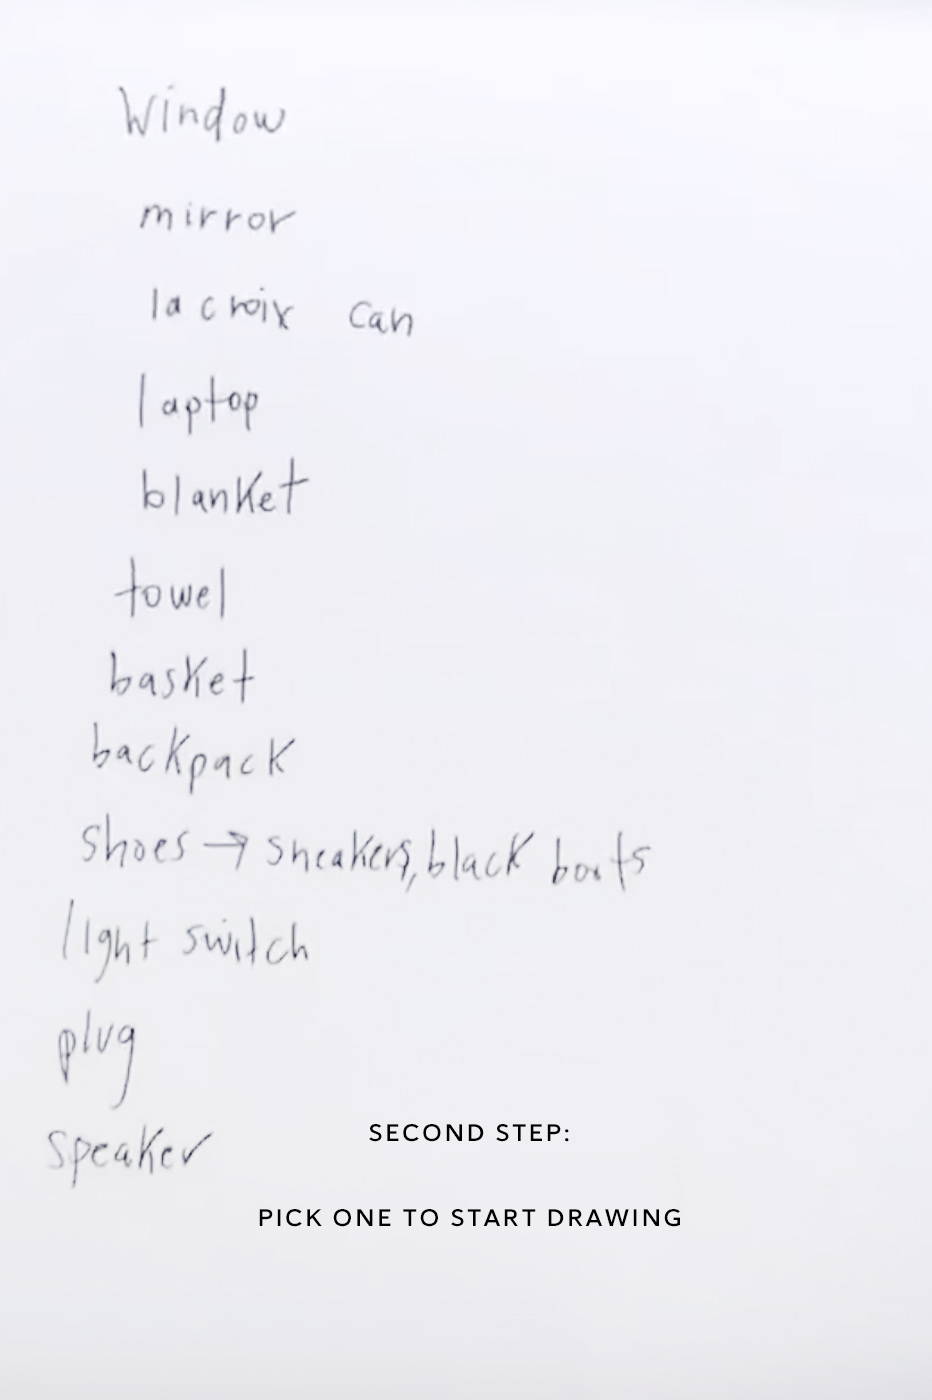 Window
mirror
lacroix can
laptop
blanket
towel
basket
backpack
shoes → sneakers, black boots
light switch
plug
speaker
SECOND STEP:
PICK ONE TO START DRAWING